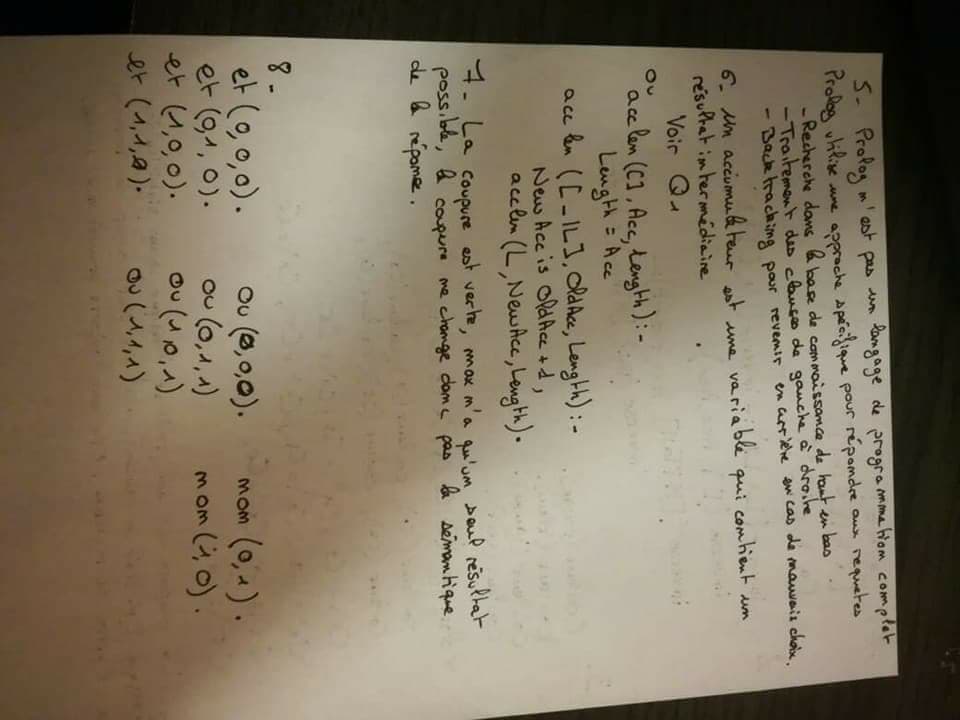 5- Prolog n'est pas un langage de programmation complet
Prolog utilise une approche spécifique pour répondre aux requetes
- Recherche dans la base de connaissance de haut en bas
- Traitement des clauses de gauche à droite
- Backtracking pour revenir en arrière en cas de mauvais choix.
6- Un accumulateur est une variable qui contient un
résultat intermédiaire
Voir Q1
ou
acclen([], Acc, Length):-
Length = Acc
acclen([_|L], OldAcc, Length):-
NewAcc is OldAcc + 1,
acclen(L, NewAcc, Length).
7- La coupure est verte, max n'a qu'un seul résultat
possible, la coupure ne change donc pas la sémantique
de la réponse.
8-
et (0,0,0). ou (0,0,0). non (0,1).
et (0,1,0). ou (0,1,1) non (1,0).
et (1,0,0). ou (1,0,1)
et (1,1, ). ou (1,1,1)